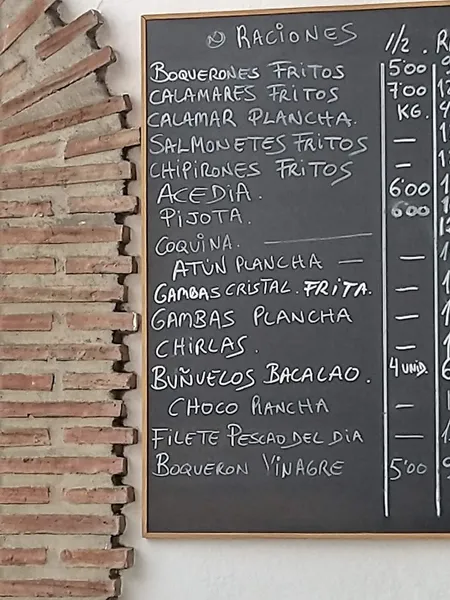 RACIONES 1/2 . R
BOQUERONES FRITOS 5'00
CALAMARES FRITOS 7'00
CALAMAR PLANCHA. KG.
SALMONETES FRITOS —
CHIPIRONES FRITOS —
ACEDIA. 6'00
PIJOTA. 6'00
COQUINA. —
ATÚN PLANCHA — —
GAMBAS CRISTAL. FRITA. —
GAMBAS PLANCHA —
CHIRLAS. —
BUÑUELOS BACALAO. 4 UNID.
CHOCO PLANCHA —
FILETE PESCAO DEL DIA —
BOQUERON VINAGRE 5'00